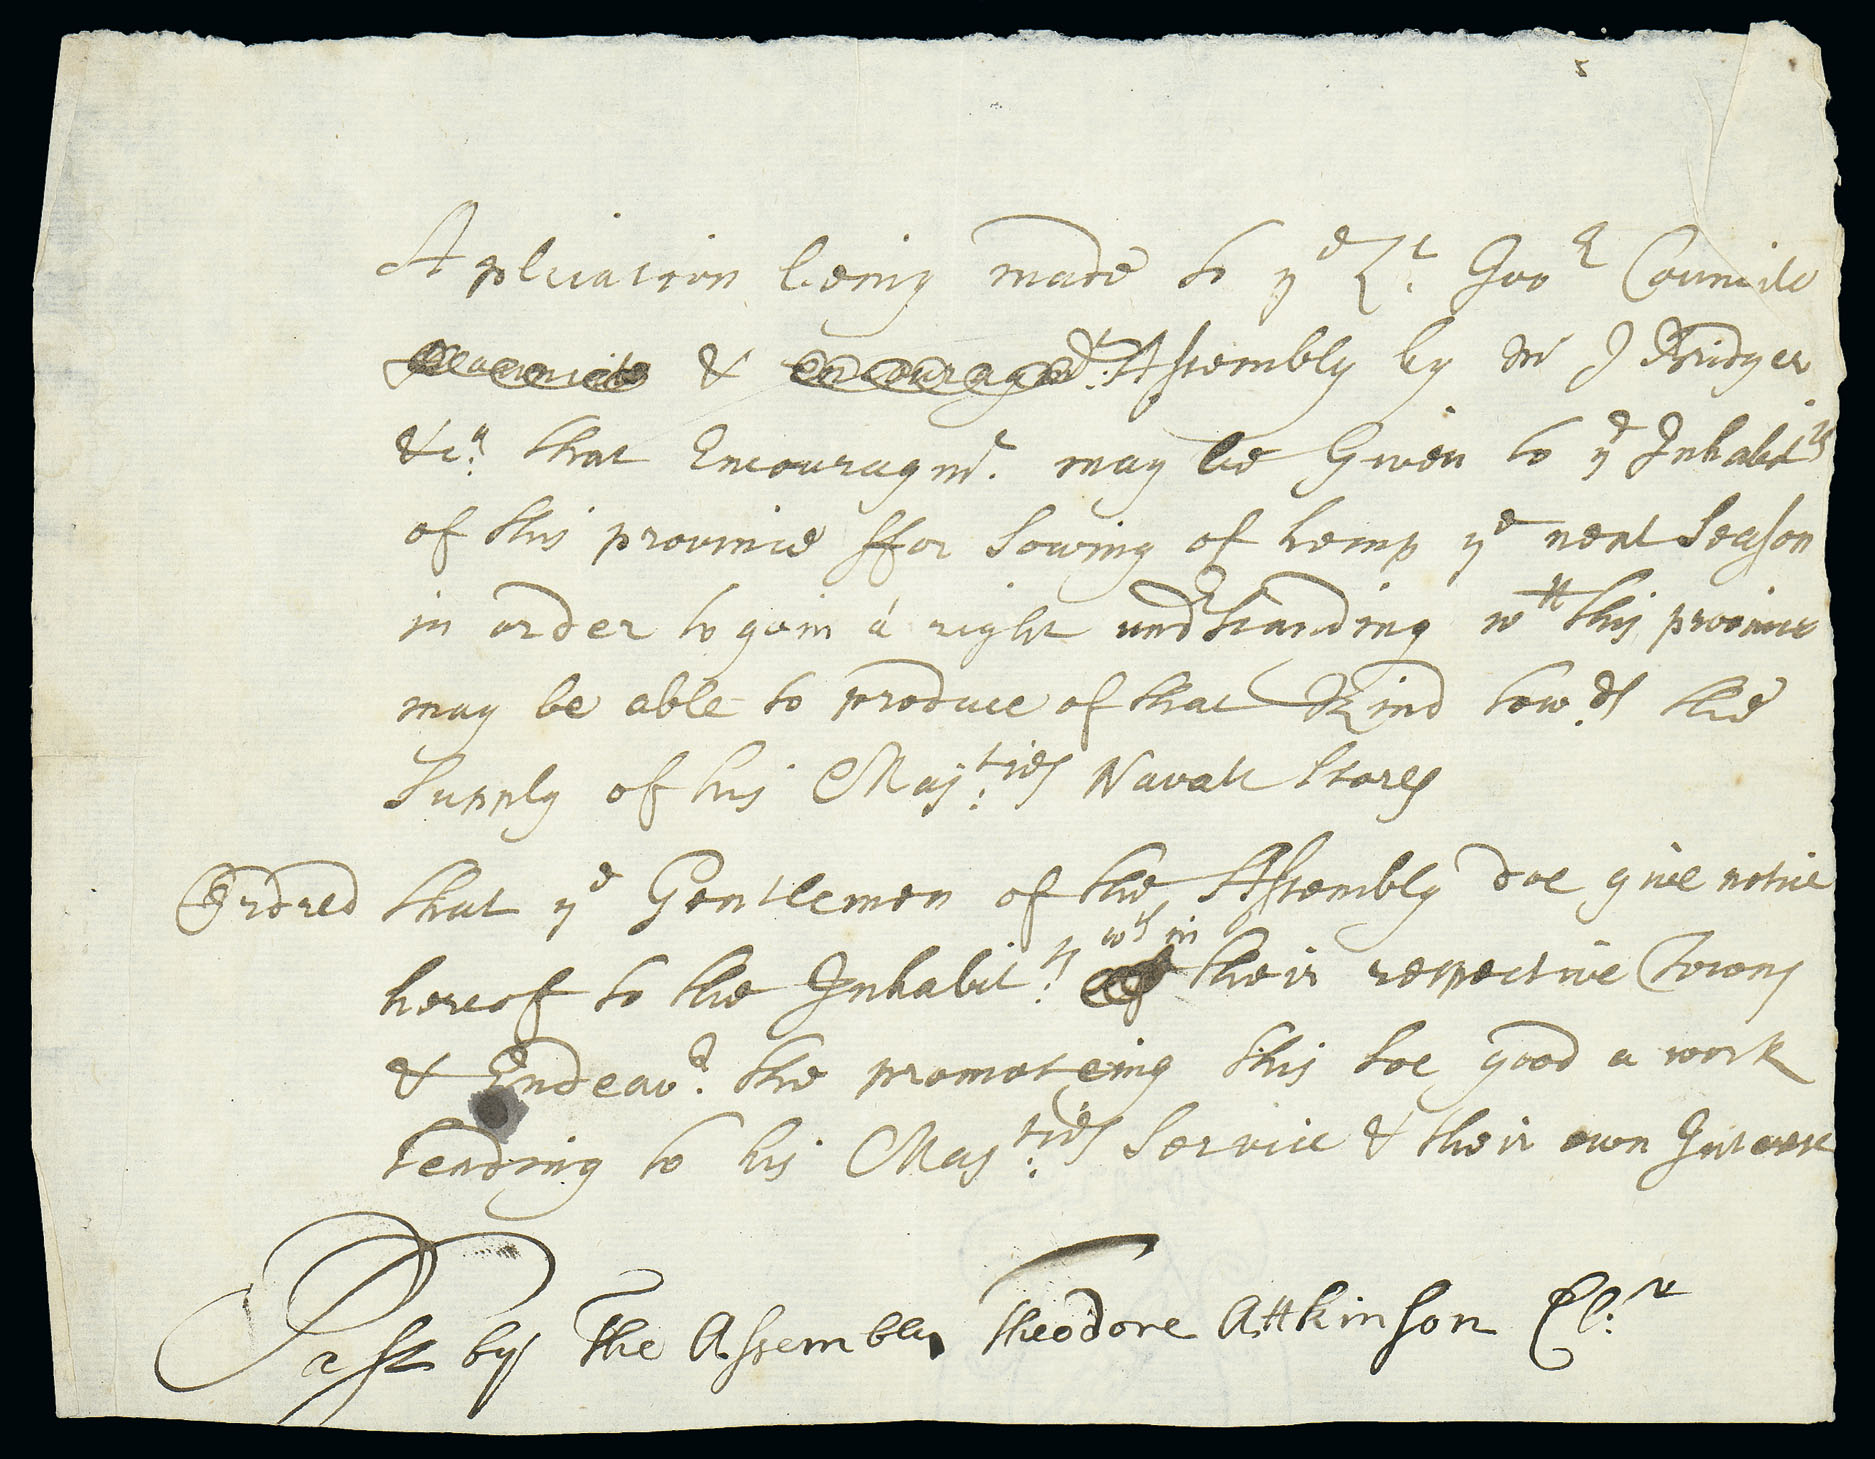 5
Aplication being made to yᵉ Lᵗ. Govᴿ Councile
& Assembly by Mʳ J Bridger
&cᵃ. that Encouragmᵗ. may be Given to yᵉ Inhabitᵗˢ
of this province ffor Sowing of hemp yᵉ next Season
in order to gain a right undʳstanding wᵗᵗ this province
may be able to produce of that Kind towᵈˢ the
Supply of his Majᵗⁱᵉˢ Navall Stores
Ordred that yᵉ Gentlemen of the Assembly doe give notice
hereof to the Inhabitᵗˢ. wᵗʰ in their respective Towns
& Endeavᴿ. the promoteing this soe good a work
tending to his Majᵗⁱᵉˢ Service & their own Interest
Past by The Assembly Theodore Attkinson Clʳ